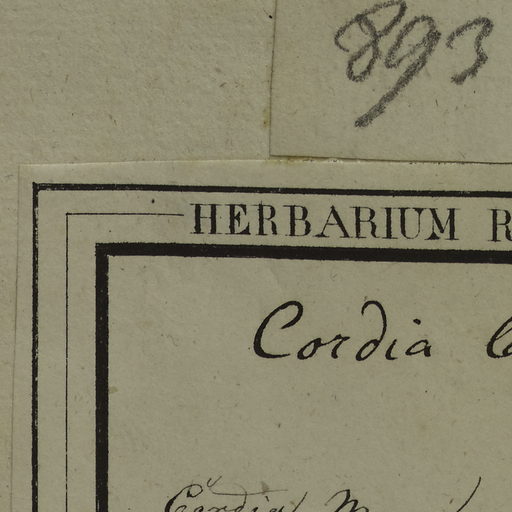 893
HERBARIUM
Cordia
Cordia